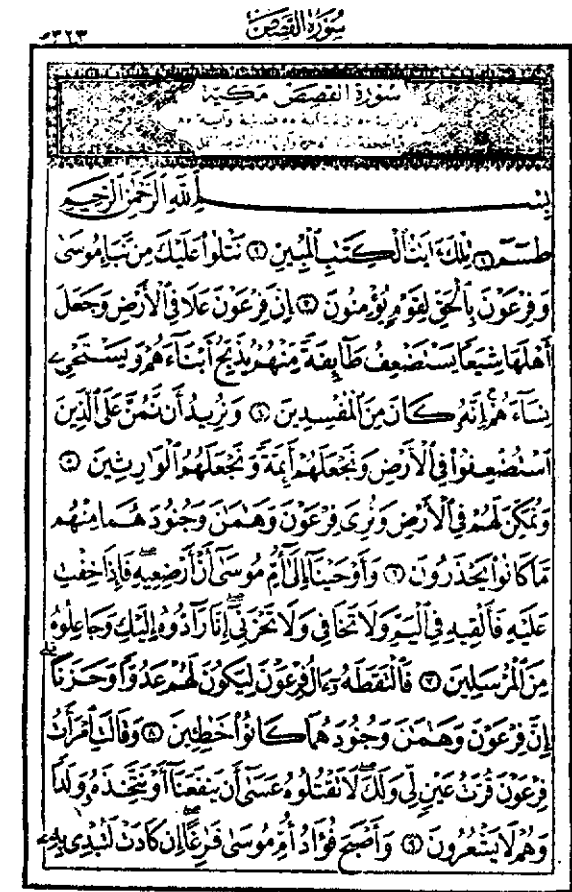 سُورَةُ القَصَصِ
٣٢٣
سورة القصص مكية
بِسْمِ ٱللَّهِ ٱلرَّحْمَٰنِ ٱلرَّحِيمِ
طسٓمٓ ١ تِلْكَ ءَايَٰتُ ٱلْكِتَٰبِ ٱلْمُبِينِ ٢ نَتْلُوا۟ عَلَيْكَ مِن نَّبَإِ مُوسَىٰ
وَفِرْعَوْنَ بِٱلْحَقِّ لِقَوْمٍ يُؤْمِنُونَ ٣ إِنَّ فِرْعَوْنَ عَلَا فِى ٱلْأَرْضِ وَجَعَلَ
أَهْلَهَا شِيَعًا يَسْتَضْعِفُ طَآئِفَةً مِّنْهُمْ يُذَبِّحُ أَبْنَآءَهُمْ وَيَسْتَحْىِۦ
نِسَآءَهُمْ إِنَّهُۥ كَانَ مِنَ ٱلْمُفْسِدِينَ ٤ وَنُرِيدُ أَن نَّمُنَّ عَلَى ٱلَّذِينَ
ٱسْتُضْعِفُوا۟ فِى ٱلْأَرْضِ وَنَجْعَلَهُمْ أَئِمَّةً وَنَجْعَلَهُمُ ٱلْوَٰرِثِينَ ٥
وَنُمَكِّنَ لَهُمْ فِى ٱلْأَرْضِ وَنُرِىَ فِرْعَوْنَ وَهَٰمَٰنَ وَجُنُودَهُمَا مِنْهُم
مَّا كَانُوا۟ يَحْذَرُونَ ٦ وَأَوْحَيْنَآ إِلَىٰٓ أُمِّ مُوسَىٰٓ أَنْ أَرْضِعِيهِ فَإِذَا خِفْتِ
عَلَيْهِ فَأَلْقِيهِ فِى ٱلْيَمِّ وَلَا تَخَافِى وَلَا تَحْزَنِىٓ إِنَّا رَآدُّوهُ إِلَيْكِ وَجَاعِلُوهُ
مِنَ ٱلْمُرْسَلِينَ ٧ فَٱلْتَقَطَهُۥٓ ءَالُ فِرْعَوْنَ لِيَكُونَ لَهُمْ عَدُوًّا وَحَزَنًا
إِنَّ فِرْعَوْنَ وَهَٰمَٰنَ وَجُنُودَهُمَا كَانُوا۟ خَٰطِـِٔينَ ٨ وَقَالَتِ ٱمْرَأَتُ
فِرْعَوْنَ قُرَّتُ عَيْنٍ لِّى وَلَكَ لَا تَقْتُلُوهُ عَسَىٰٓ أَن يَنفَعَنَآ أَوْ نَتَّخِذَهُۥ وَلَدًا
وَهُمْ لَا يَشْعُرُونَ ٩ وَأَصْبَحَ فُؤَادُ أُمِّ مُوسَىٰ فَٰرِغًا إِن كَادَتْ لَتُبْدِى بِهِۦ